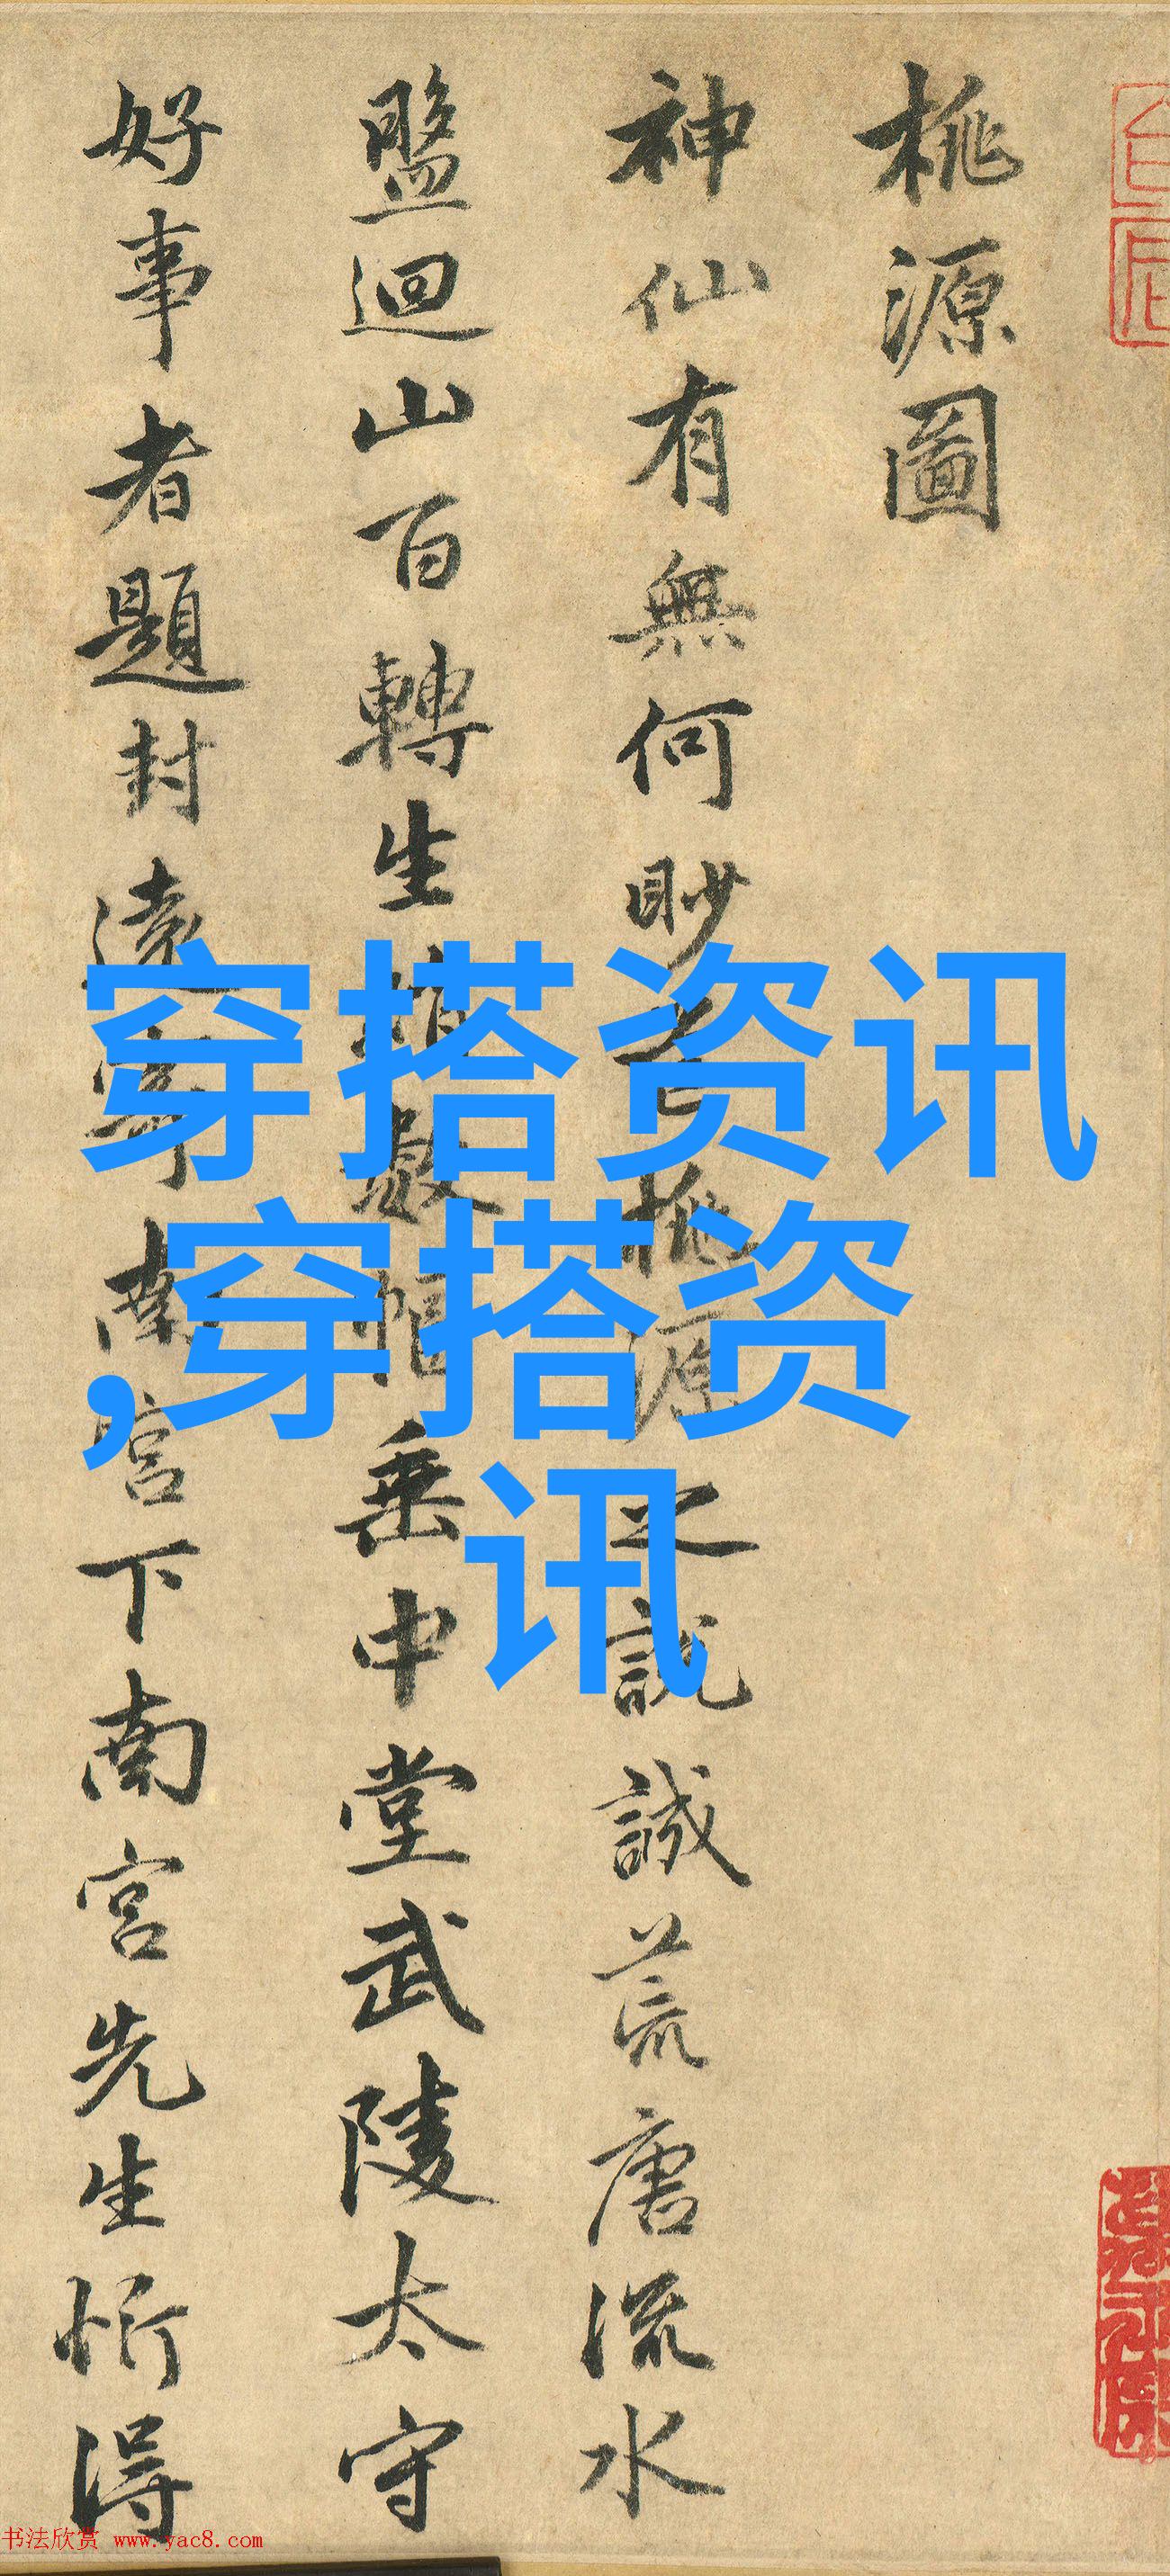 桃源圖
神仙有無何眇芒桃源之說誠荒唐流水
盤迴山百轉生綃數幅垂中堂武陵太守
好事者題封遠寄南宮下南宮先生忻得
穿搭资讯
,穿搭资
讯
书法欣赏 www.yac8.com